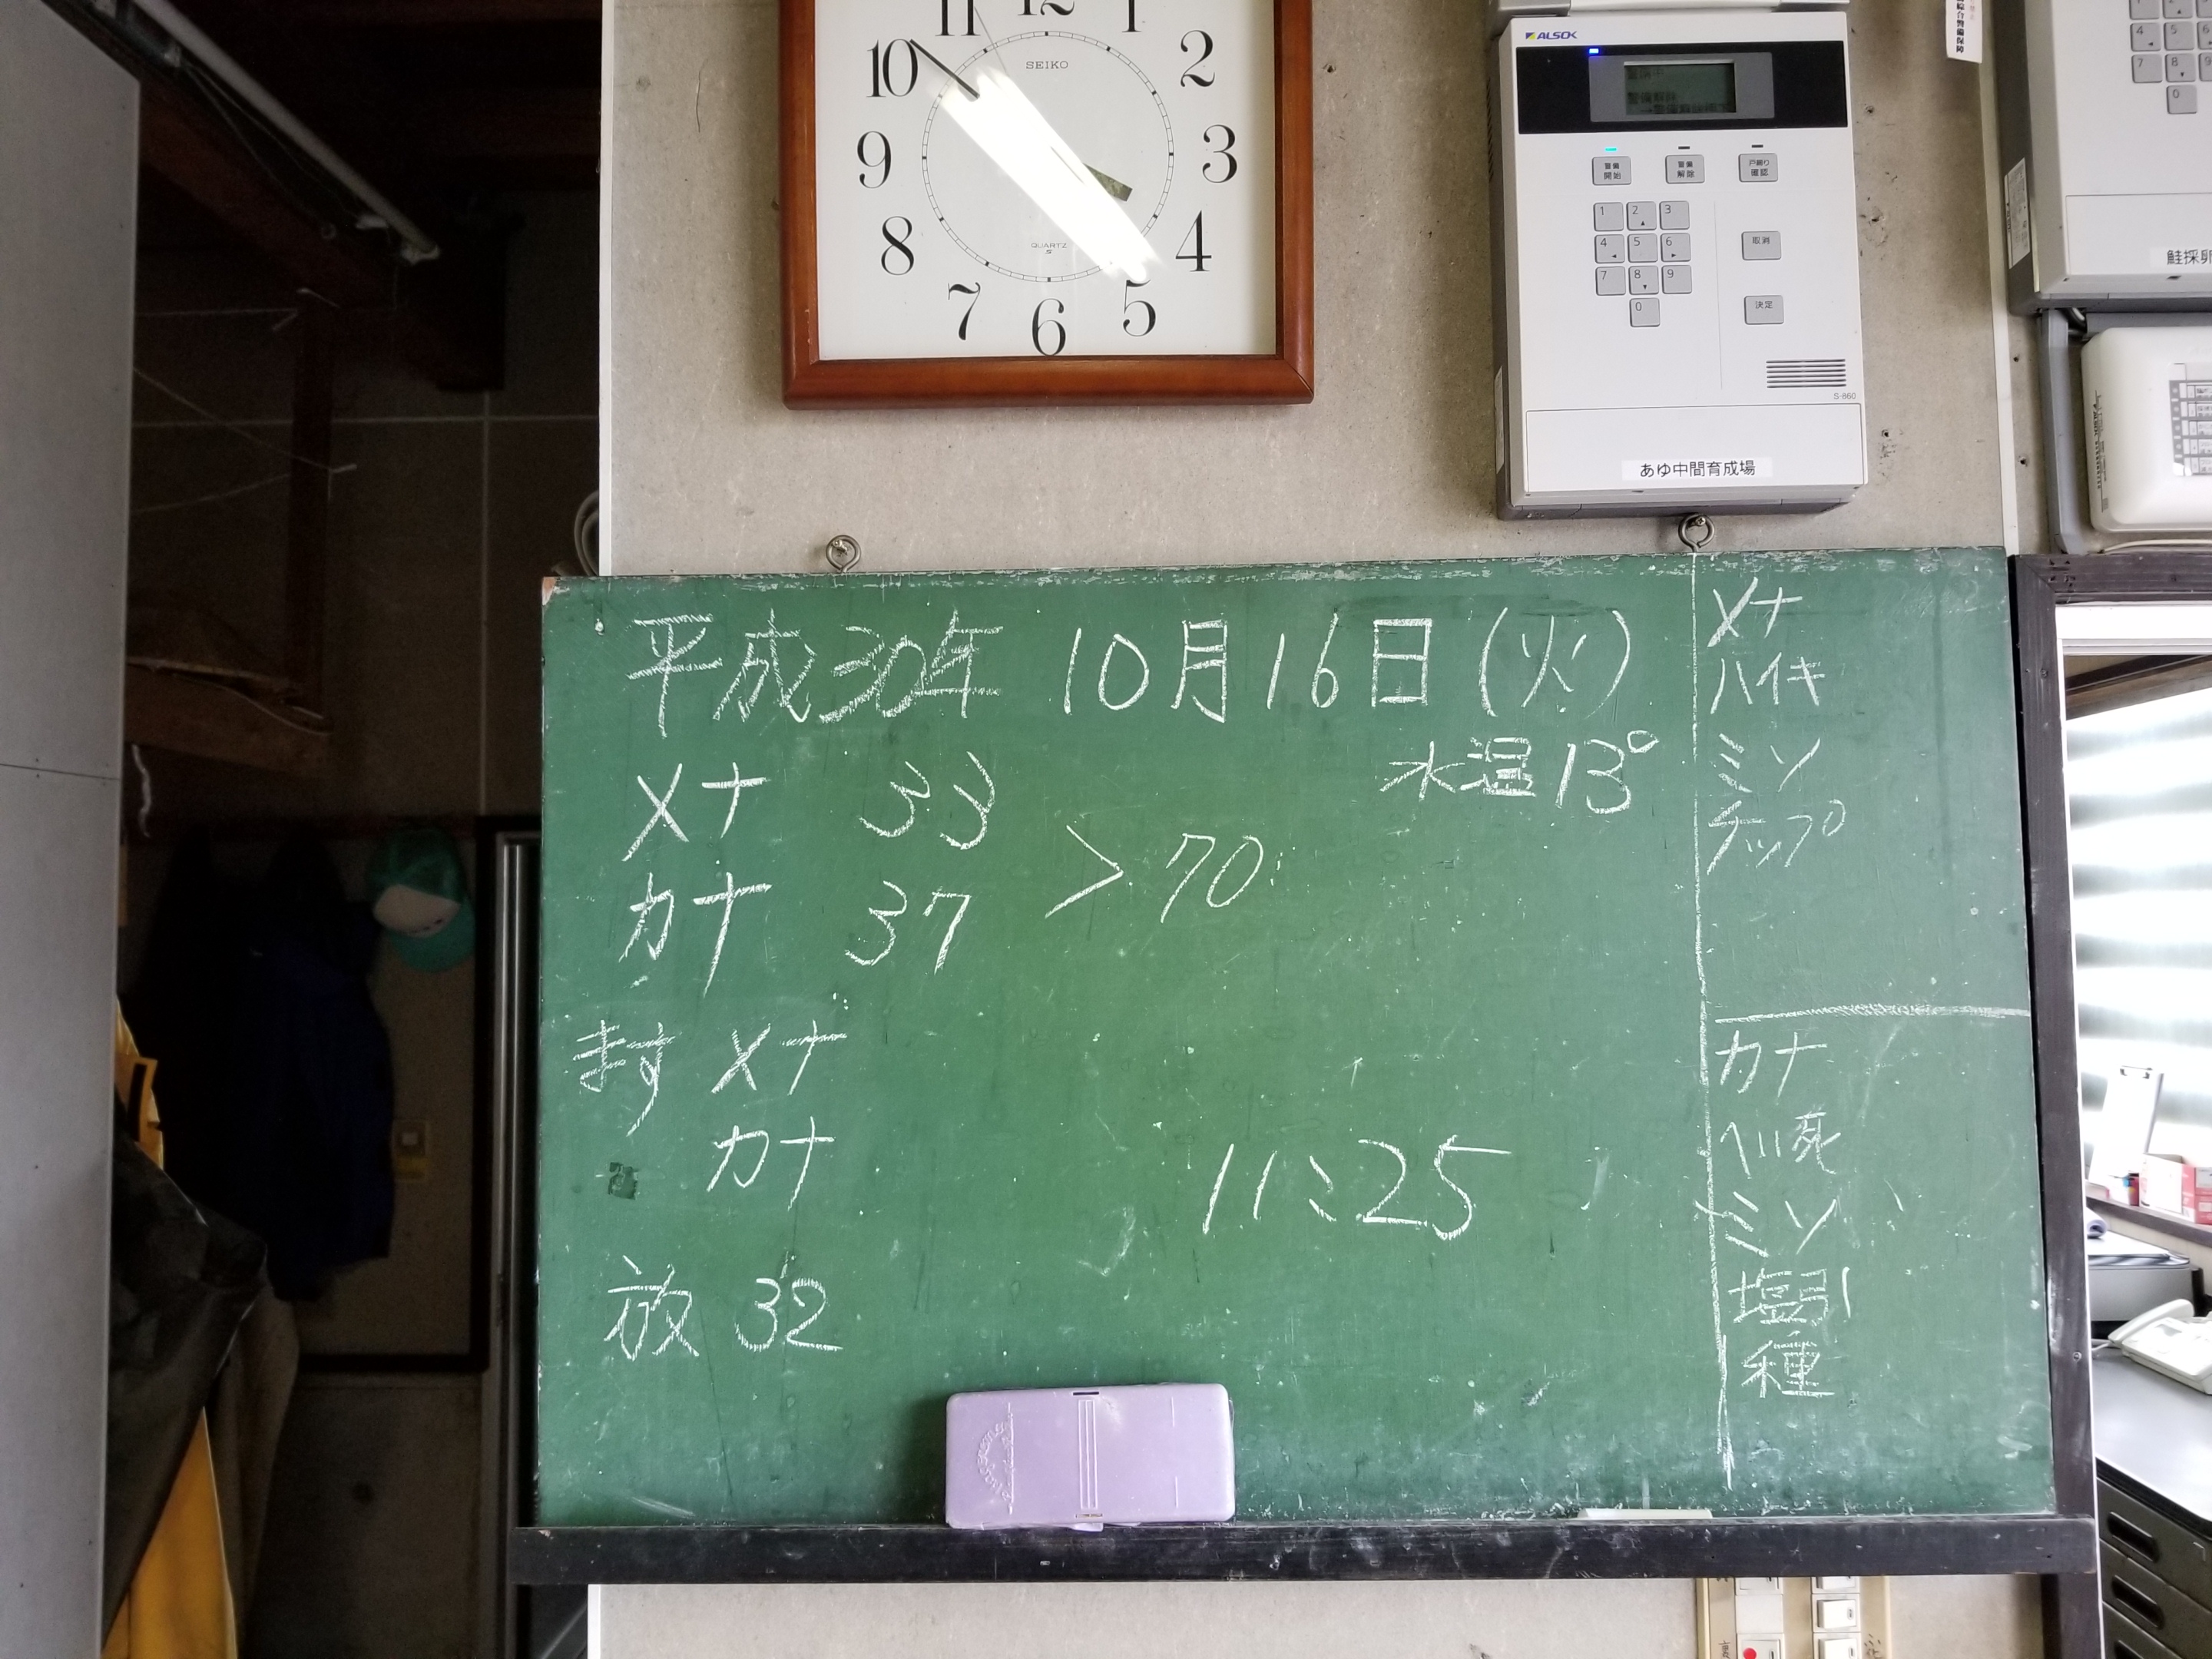 11 12 1
10 2
9 3
8 4
7 6 5
SEIKO
QUARTZ
ALSOK
警備開始
警備解除
戸締り確認
1 2 3
4 5 6
7 8 9
0
取消
決定
S-860
あゆ中間育成場
綜合警備保障
4 5
7 8 9
0
鮭採卵
平成30年 10月16日(火)
水温13°
メナ 33
カナ 37
>70
ます メナ
カナ
11:25
放 32
メナ
ハイキ
ミソ
チップ
カナ
ミソ
塩引
種